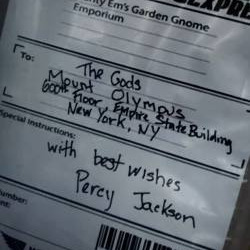 Em's Garden Gnome
Emporium
To:
The Gods
Mount Olympus
600th Floor, Empire State Building
New York, NY
Special Instructions:
with best wishes
Percy Jackson